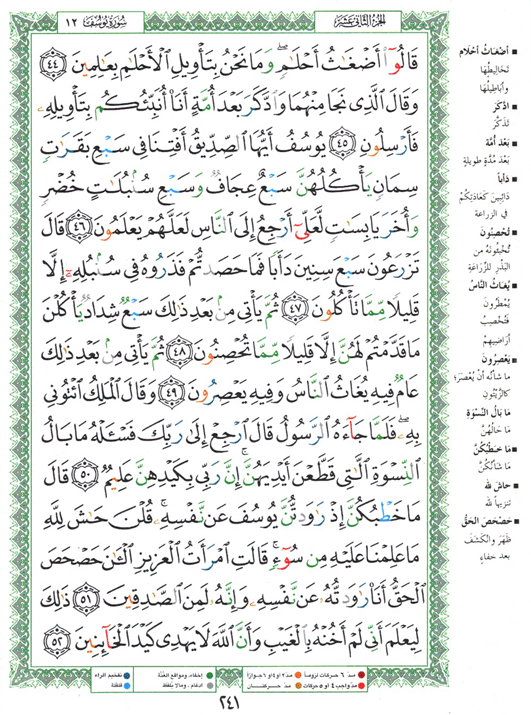 الجزء الثاني عشر
سورة يوسف ١٢
قَالُوٓا۟ أَضْغَٰثُ أَحْلَٰمٍۢ ۖ وَمَا نَحْنُ بِتَأْوِيلِ ٱلْأَحْلَٰمِ بِعَٰلِمِينَ ٤٤
وَقَالَ ٱلَّذِى نَجَا مِنْهُمَا وَٱدَّكَرَ بَعْدَ أُمَّةٍ أَنَا۠ أُنَبِّئُكُم بِتَأْوِيلِهِۦ
فَأَرْسِلُونِ ٤٥ يُوسُفُ أَيُّهَا ٱلصِّدِّيقُ أَفْتِنَا فِى سَبْعِ بَقَرَٰتٍۢ
سِمَانٍۢ يَأْكُلُهُنَّ سَبْعٌ عِجَافٌۭ وَسَبْعِ سُنۢبُلَٰتٍ خُضْرٍۢ
وَأُخَرَ يَابِسَٰتٍۢ لَّعَلِّىٓ أَرْجِعُ إِلَى ٱلنَّاسِ لَعَلَّهُمْ يَعْلَمُونَ ٤٦ قَالَ
تَزْرَعُونَ سَبْعَ سِنِينَ دَأَبًۭا فَمَا حَصَدتُّمْ فَذَرُوهُ فِى سُنۢبُلِهِۦٓ إِلَّا
قَلِيلًۭا مِّمَّا تَأْكُلُونَ ٤٧ ثُمَّ يَأْتِى مِنۢ بَعْدِ ذَٰلِكَ سَبْعٌۭ شِدَادٌۭ يَأْكُلْنَ
مَا قَدَّمْتُمْ لَهُنَّ إِلَّا قَلِيلًۭا مِّمَّا تُحْصِنُونَ ٤٨ ثُمَّ يَأْتِى مِنۢ بَعْدِ ذَٰلِكَ
عَامٌۭ فِيهِ يُغَاثُ ٱلنَّاسُ وَفِيهِ يَعْصِرُونَ ٤٩ وَقَالَ ٱلْمَلِكُ ٱئْتُونِى
بِهِۦ ۖ فَلَمَّا جَآءَهُ ٱلرَّسُولُ قَالَ ٱرْجِعْ إِلَىٰ رَبِّكَ فَسْـَٔلْهُ مَا بَالُ
ٱلنِّسْوَةِ ٱلَّٰتِى قَطَّعْنَ أَيْدِيَهُنَّ ۚ إِنَّ رَبِّى بِكَيْدِهِنَّ عَلِيمٌۭ ٥٠ قَالَ
مَا خَطْبُكُنَّ إِذْ رَٰوَدتُّنَّ يُوسُفَ عَن نَّفْسِهِۦ ۚ قُلْنَ حَٰشَ لِلَّهِ
مَا عَلِمْنَا عَلَيْهِ مِن سُوٓءٍۢ ۚ قَالَتِ ٱمْرَأَتُ ٱلْعَزِيزِ ٱلْـَٰٔنَ حَصْحَصَ
ٱلْحَقُّ أَنَا۠ رَٰوَدتُّهُۥ عَن نَّفْسِهِۦ وَإِنَّهُۥ لَمِنَ ٱلصَّٰدِقِينَ ٥١ ذَٰلِكَ
لِيَعْلَمَ أَنِّى لَمْ أَخُنْهُ بِٱلْغَيْبِ وَأَنَّ ٱللَّهَ لَا يَهْدِى كَيْدَ ٱلْخَآئِنِينَ ٥٢
أضغاث أحلام
تخاليطها
وأباطيلها
ادّكر
تذكّر
بعد أمّة
بعد مدّة طويلة
دأبا
دائبين كعادتكم
في الزراعة
تحصنون
تخبئونه من
البذر للزراعة
يغاث الناس
يمطرون
فتخصب
أراضيهم
يعصرون
ما شأنه أن يعصر
كالزيتون
ما بال النسوة
ما حالهنّ
ما خطبكنّ
ما شأنكنّ
حاش لله
تنزيها لله
حصحص الحق
ظهر وانكشف
بعد خفاء
مدّ ٦ حركات لزوماً
مدّ ٢ أو ٤ أو ٦ جوازاً
إخفاء، ومواقع الغنّة
تفخيم الراء
مدّ واجب ٤ أو ٥ حركات
مدّ حركتان
إدغام، وما لا يلفظ
قلقلة
٢٤١